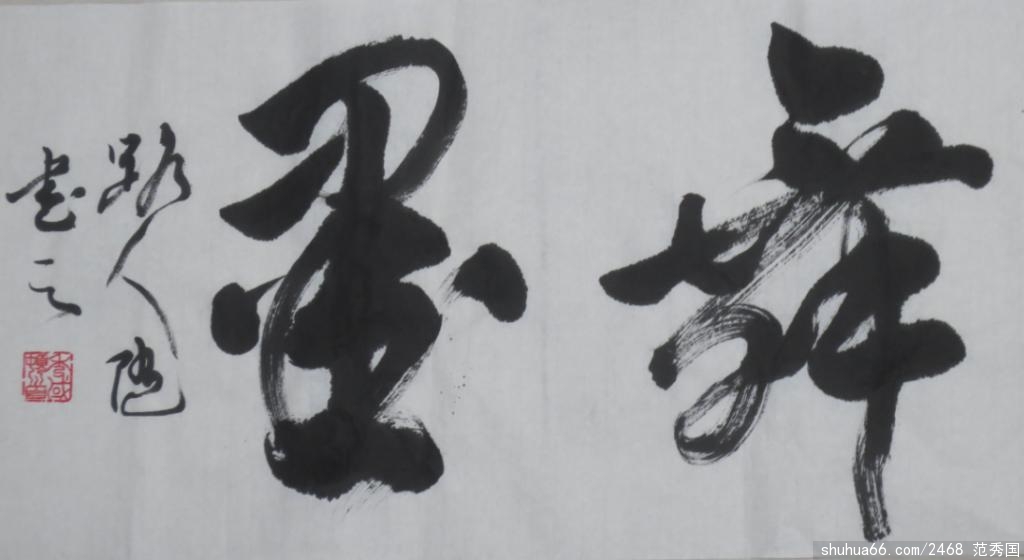 舞墨
路人
書之
shuhua66.com/2468 范秀国